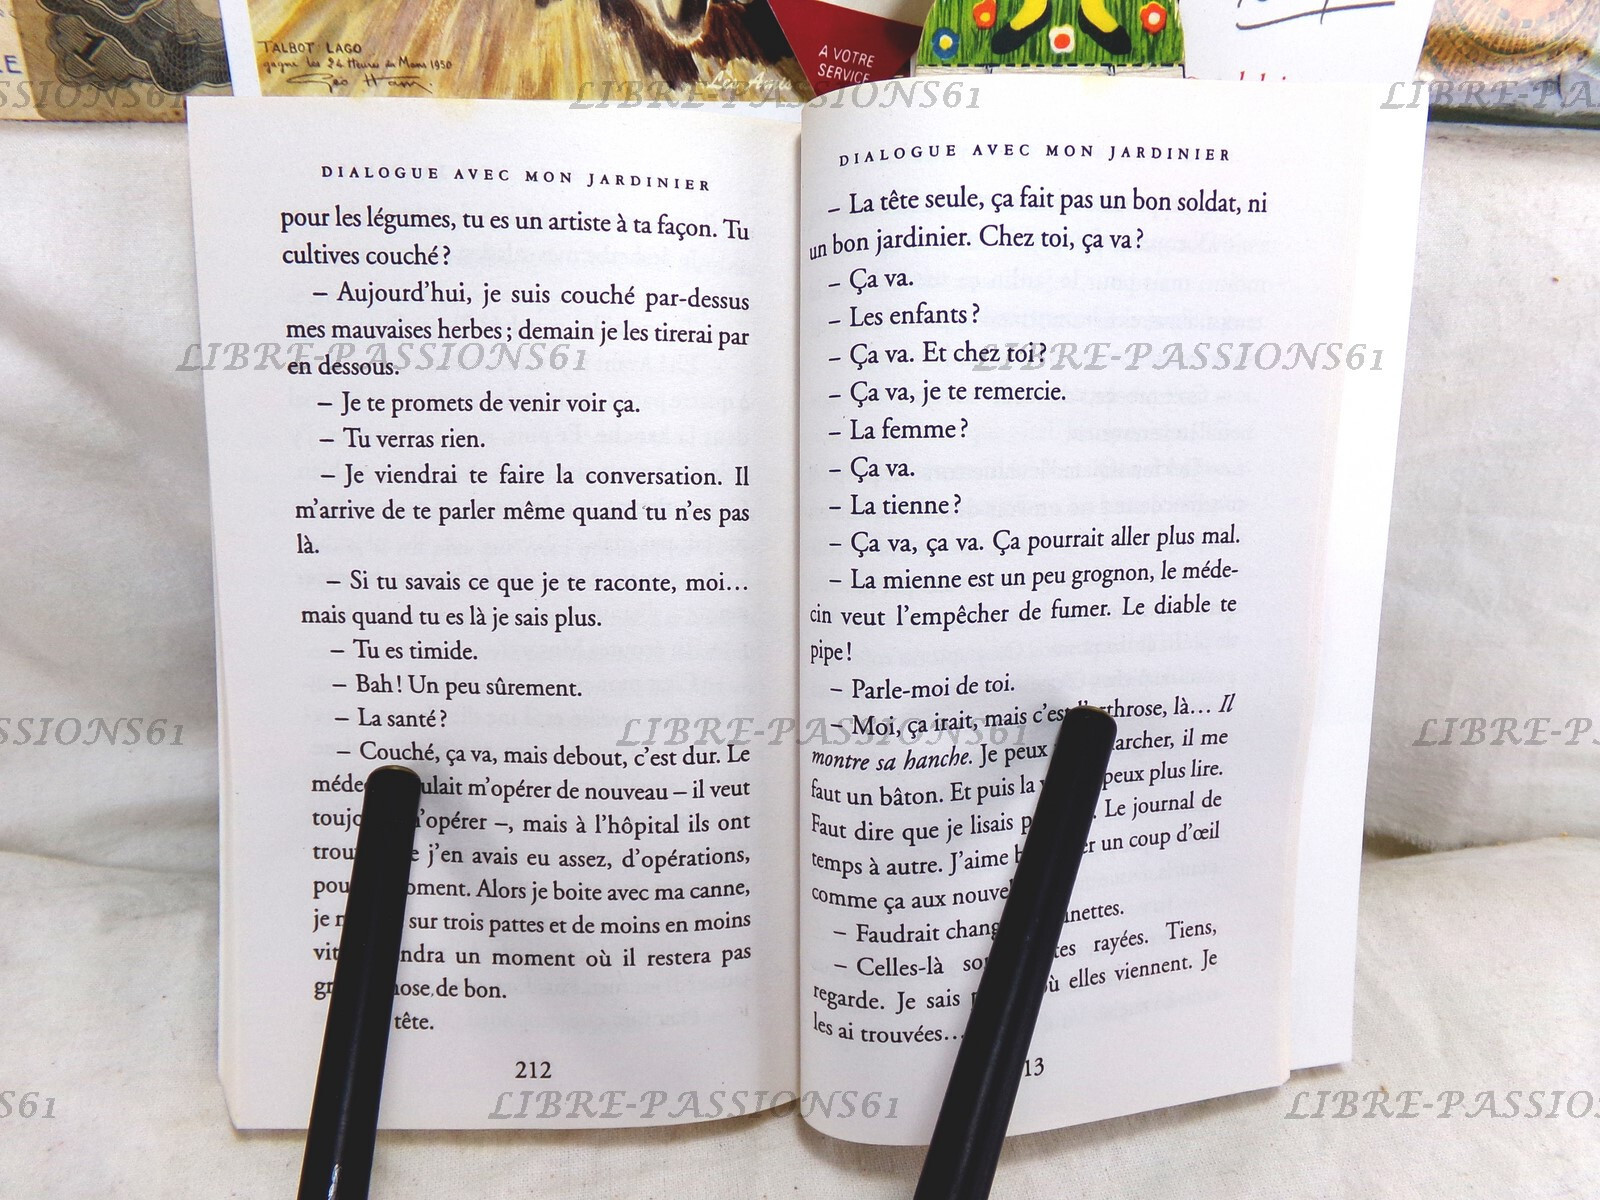 TALBOT LAGO
gagne les 24 Heures du Mans 1950
Géo Ham
A VOTRE
SERVICE
1
LIBRE-PASSIONS61
DIALOGUE AVEC MON JARDINIER
pour les légumes, tu es un artiste à ta façon. Tu
cultives couché ?
– Aujourd'hui, je suis couché par-dessus
mes mauvaises herbes ; demain je les tirerai par
en dessous.
– Je te promets de venir voir ça.
– Tu verras rien.
– Je viendrai te faire la conversation. Il
m'arrive de te parler même quand tu n'es pas
là.
– Si tu savais ce que je te raconte, moi…
mais quand tu es là je sais plus.
– Tu es timide.
– Bah ! Un peu sûrement.
– La santé ?
– Couché, ça va, mais debout, c'est dur. Le
ulait m'opérer de nouveau – il veut
'opérer –, mais à l'hôpital ils ont
j'en avais eu assez, d'opérations,
oment. Alors je boite avec ma canne,
je sur trois pattes et de moins en moins
ndra un moment où il restera pas
hose de bon.
tête.
212
DIALOGUE AVEC MON JARDINIER
– La tête seule, ça fait pas un bon soldat, ni
un bon jardinier. Chez toi, ça va ?
– Ça va.
– Les enfants ?
– Ça va. Et chez toi ?
– Ça va, je te remercie.
– La femme ?
– Ça va.
– La tienne ?
– Ça va, ça va. Ça pourrait aller plus mal.
– La mienne est un peu grognon, le méde-
cin veut l'empêcher de fumer. Le diable te
pipe !
– Parle-moi de toi.
– Moi, ça irait, mais c'est l'arthrose, là… Il
montre sa hanche. Je peux marcher, il me
faut un bâton. Et puis la peux plus lire.
Faut dire que je lisais Le journal de
temps à autre. J'aime un coup d'œil
comme ça aux nouvel
– Faudrait chang inettes.
– Celles-là so tes rayées. Tiens,
regarde. Je sais où elles viennent. Je
les ai trouvées…
13
LIBRE-PASSIONS61
LIBRE-PASSIONS61
LIBRE-PASSIONS61
LIBRE-PASSIONS61